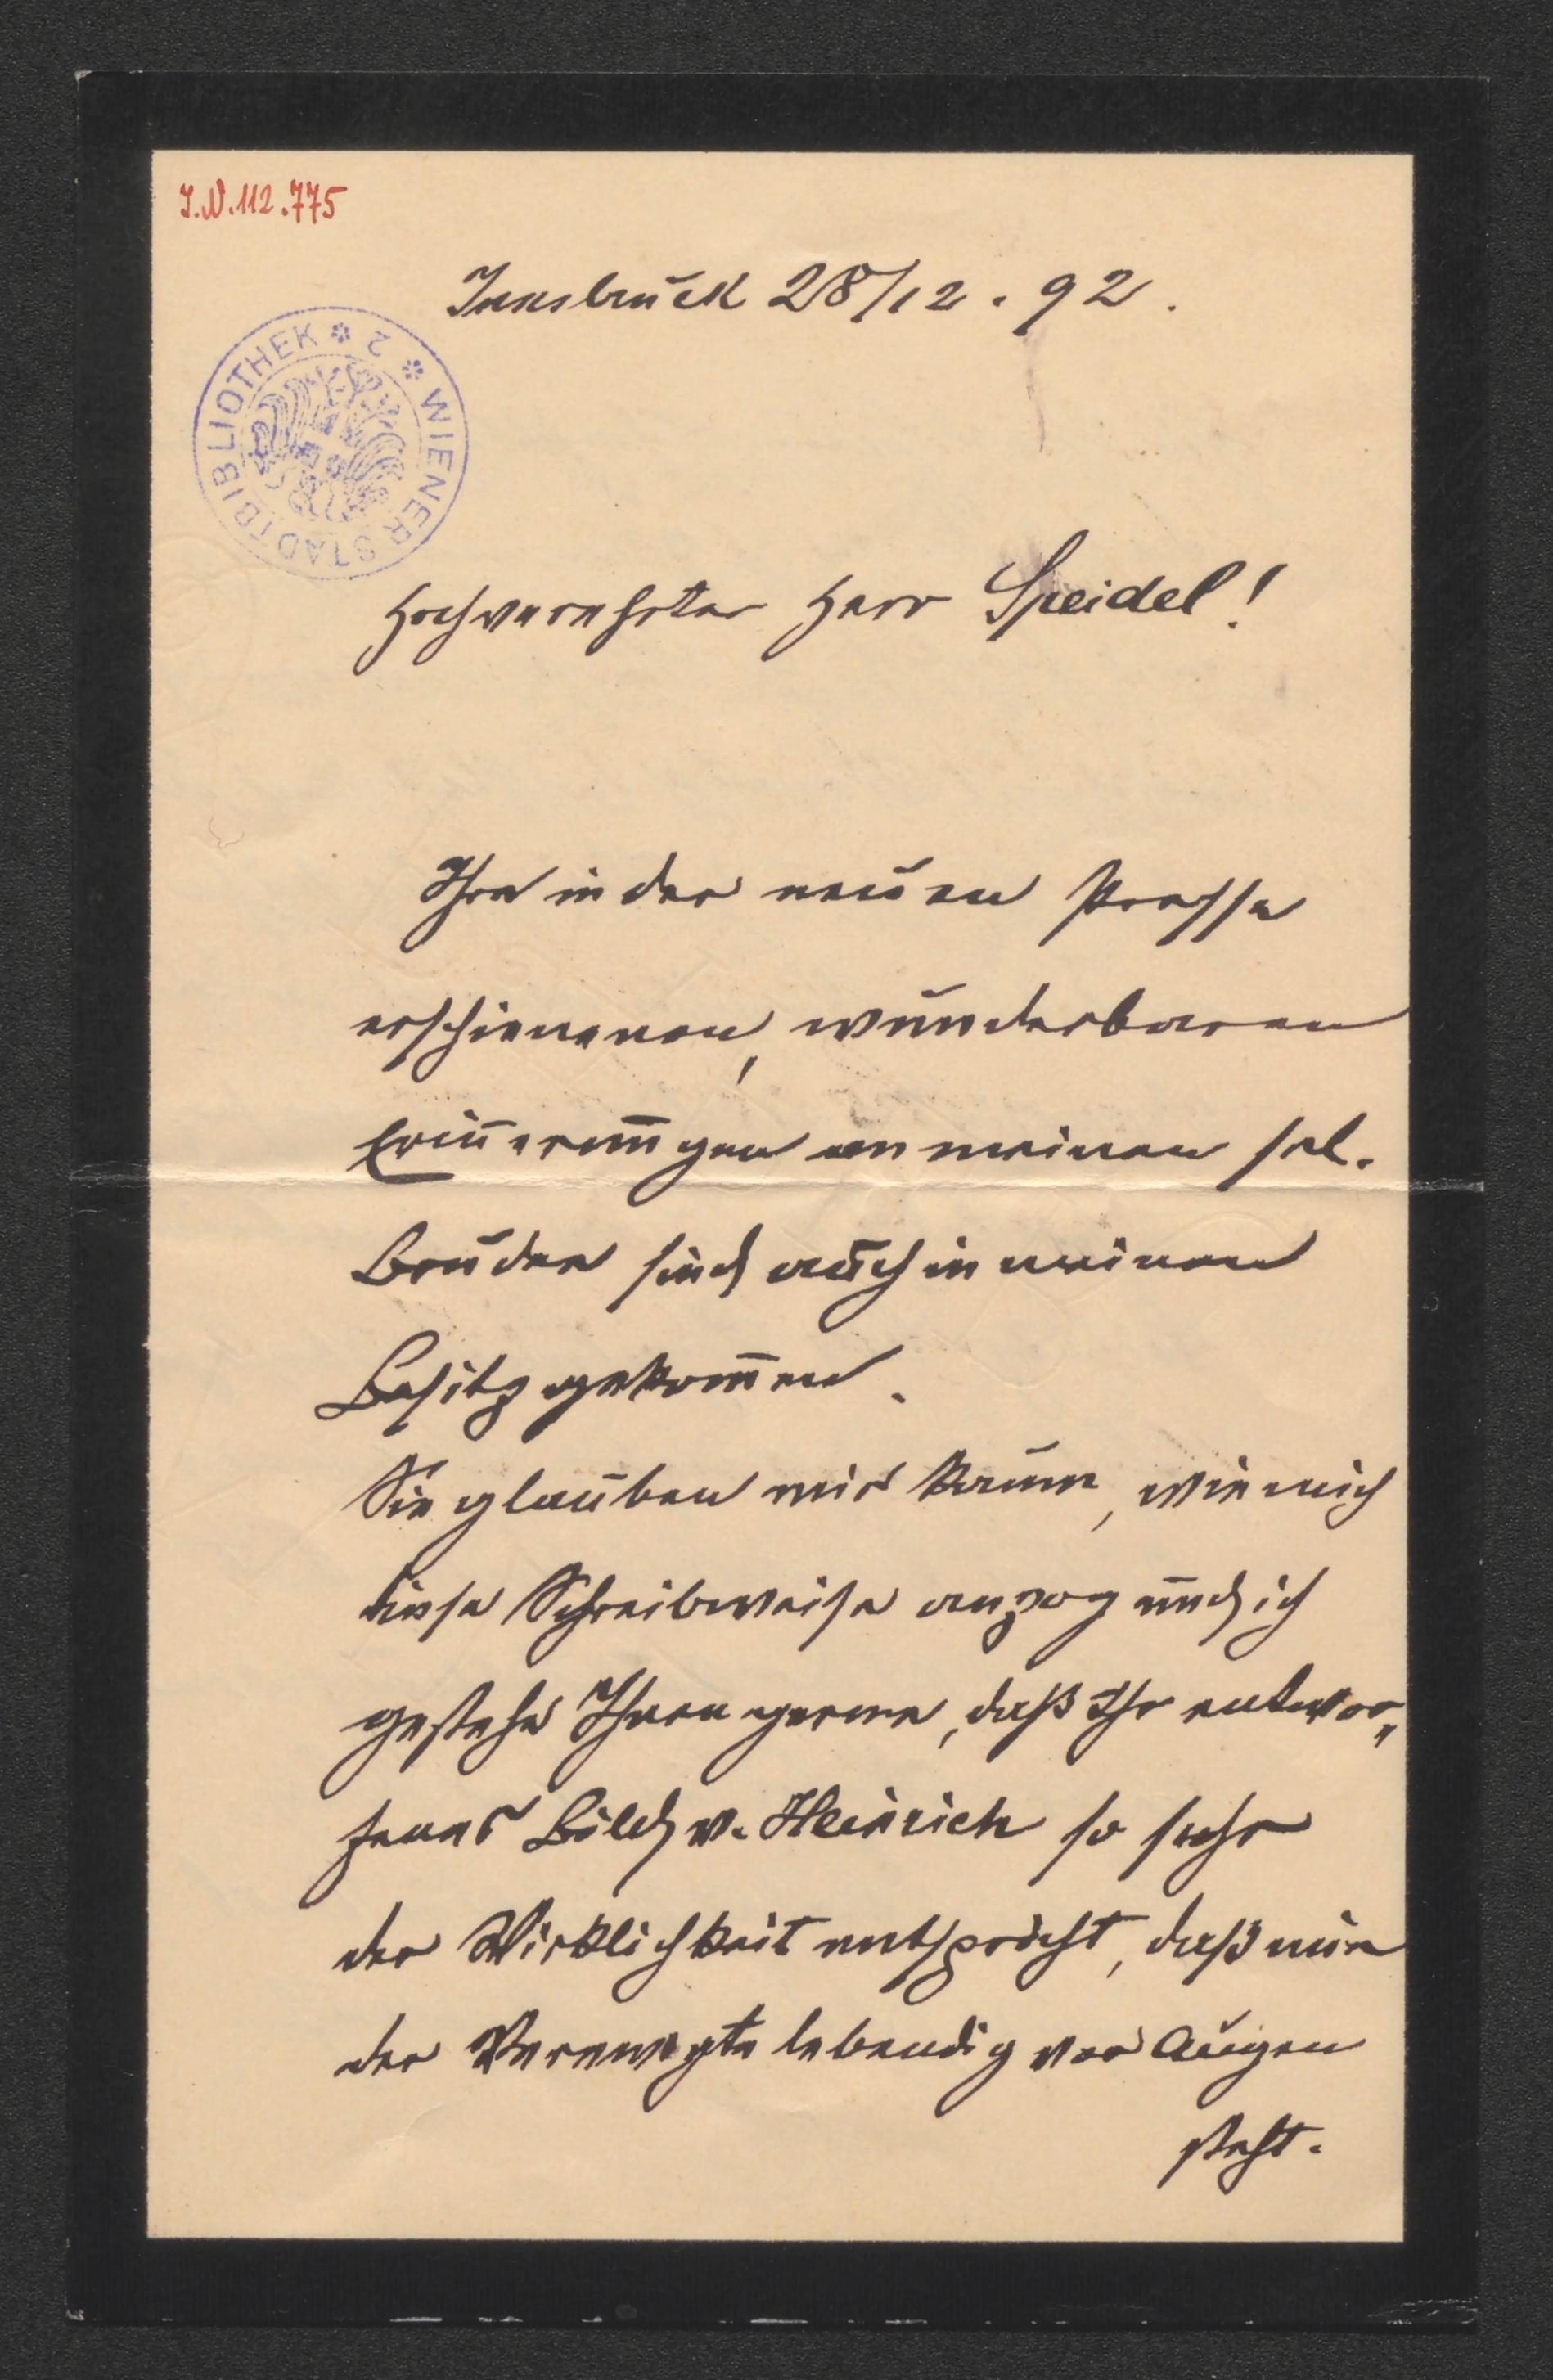 J.N. 112.775
Innsbruck 28/12. 92.
WIENER STADTBIBLIOTHEK
Hochverehrter Herr Speidel!
Ihre in der neuen Presse
erschienenen, wunderbaren
Erin̅erungen an meinen sel.
Bruder sind auch in meinen
Besitz gekom̅en.
Sie glauben mir kaum, wie mich
diese Schreibweise anzog und ich
gestehe Ihnen gerne, daß Ihr entwor„
fenes Bild v. Heinrich so sehr
der Wirklichkeit entspricht, daß mir
der Verewigte lebendig vor Augen
steht.